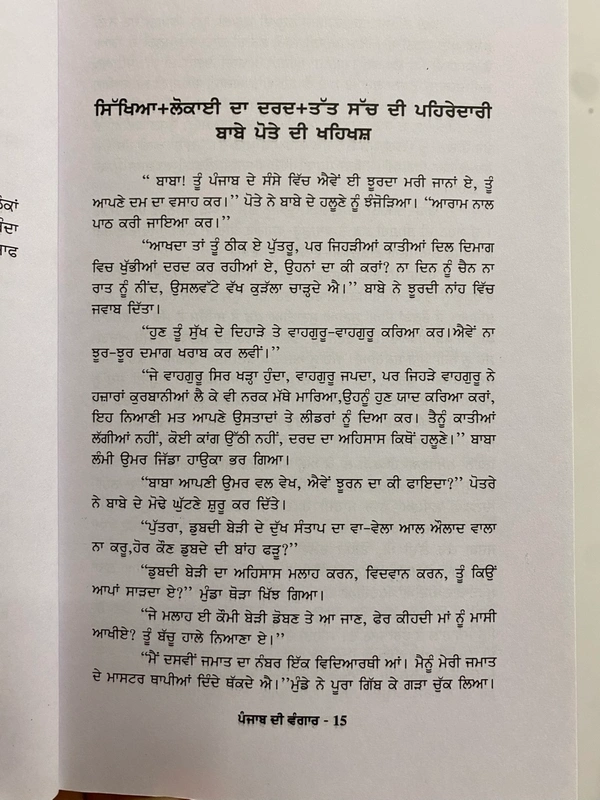 ਸਿੱਖਿਆ+ਲੋਕਾਈ ਦਾ ਦਰਦ+ਤੱਤ ਸੱਚ ਦੀ ਪਹਿਰੇਦਾਰੀ
ਬਾਬੇ ਪੋਤੇ ਦੀ ਖਹਿਖਸ਼
“ ਬਾਬਾ! ਤੂੰ ਪੰਜਾਬ ਦੇ ਸੰਸੇ ਵਿੱਚ ਐਵੇਂ ਈ ਝੂਰਦਾ ਮਰੀ ਜਾਨਾਂ ਏ, ਤੂੰ
ਆਪਣੇ ਦਮ ਦਾ ਵਸਾਹ ਕਰ।’’ ਪੋਤੇ ਨੇ ਬਾਬੇ ਦੇ ਹਲੂਣੇ ਨੂੰ ਝੰਜੋੜਿਆ। “ਆਰਾਮ ਨਾਲ
ਪਾਠ ਕਰੀ ਜਾਇਆ ਕਰ।’’
“ਆਖਦਾ ਤਾਂ ਤੂੰ ਠੀਕ ਏ ਪੁੱਤਰੂ, ਪਰ ਜਿਹੜੀਆਂ ਕਾਤੀਆਂ ਦਿਲ ਦਿਮਾਗ
ਵਿਚ ਖੁੱਭੀਆਂ ਦਰਦ ਕਰ ਰਹੀਆਂ ਏ, ਉਹਨਾਂ ਦਾ ਕੀ ਕਰਾਂ? ਨਾ ਦਿਨ ਨੂੰ ਚੈਨ ਨਾ
ਰਾਤ ਨੂੰ ਨੀਂਦ, ਉਸਲਵੱਟੇ ਵੱਖ ਕੁੜੱਲਾ ਚਾੜ੍ਹਦੇ ਐ।’’ ਬਾਬੇ ਨੇ ਝੂਰਦੀ ਨਾਂਹ ਵਿੱਚ
ਜਵਾਬ ਦਿੱਤਾ।
“ਹੁਣ ਤੂੰ ਸੁੱਖ ਦੇ ਦਿਹਾੜੇ ਤੇ ਵਾਹਗੁਰੂ-ਵਾਹਗੁਰੂ ਕਰਿਆ ਕਰ।ਐਵੇਂ ਨਾ
ਝੂਰ-ਝੂਰ ਦਮਾਗ ਖਰਾਬ ਕਰ ਲਵੀਂ।’’
“ਜੇ ਵਾਹਗੁਰੂ ਸਿਰ ਖੜ੍ਹਾ ਹੁੰਦਾ, ਵਾਹਗੁਰੂ ਜਪਦਾ, ਪਰ ਜਿਹੜੇ ਵਾਹਗੁਰੂ ਨੇ
ਹਜ਼ਾਰਾਂ ਕੁਰਬਾਨੀਆਂ ਲੈ ਕੇ ਵੀ ਨਰਕ ਮੱਥੇ ਮਾਰਿਆ,ਉਹਨੂੰ ਹੁਣ ਯਾਦ ਕਰਿਆ ਕਰਾਂ,
ਇਹ ਨਿਆਣੀ ਮਤ ਆਪਣੇ ਉਸਤਾਦਾਂ ਤੇ ਲੀਡਰਾਂ ਨੂੰ ਦਿਆ ਕਰ। ਤੈਨੂੰ ਕਾਤੀਆਂ
ਲੱਗੀਆਂ ਨਹੀਂ, ਕੋਈ ਕਾਂਗ ਉੱਠੀ ਨਹੀਂ, ਦਰਦ ਦਾ ਅਹਿਸਾਸ ਕਿਥੋਂ ਹਲੂਣੇ।’’ ਬਾਬਾ
ਲੰਮੀ ਉਮਰ ਜਿੱਡਾ ਹਾਉਕਾ ਭਰ ਗਿਆ।
“ਬਾਬਾ ਆਪਣੀ ਉਮਰ ਵਲ ਵੇਖ, ਐਵੇਂ ਝੂਰਨ ਦਾ ਕੀ ਫਾਇਦਾ?’’ ਪੋਤਰੇ
ਨੇ ਬਾਬੇ ਦੇ ਮੋਢੇ ਘੁੱਟਣੇ ਸ਼ੁਰੂ ਕਰ ਦਿੱਤੇ।
“ਪੁੱਤਰਾ, ਡੁਬਦੀ ਬੇੜੀ ਦੇ ਦੁੱਖ ਸੰਤਾਪ ਦਾ ਵਾ-ਵੇਲਾ ਆਲ ਔਲਾਦ ਵਾਲਾ
ਨਾ ਕਰੂ,ਹੋਰ ਕੌਣ ਡੁਬਦੇ ਦੀ ਬਾਂਹ ਫੜੂ?’’
“ਡੁਬਦੀ ਬੇੜੀ ਦਾ ਅਹਿਸਾਸ ਮਲਾਹ ਕਰਨ, ਵਿਦਵਾਨ ਕਰਨ, ਤੂੰ ਕਿਉਂ
ਆਪਾਂ ਸਾੜਦਾ ਏ?’’ ਮੁੰਡਾ ਥੋੜਾ ਖਿੱਝ ਗਿਆ।
“ਜੇ ਮਲਾਹ ਈ ਕੌਮੀ ਬੇੜੀ ਡੋਬਣ ਤੇ ਆ ਜਾਣ, ਫੇਰ ਕੀਹਦੀ ਮਾਂ ਨੂੰ ਮਾਸੀ
ਆਖੀਏ? ਤੂੰ ਬੱਚੂ ਹਾਲੇ ਨਿਆਣਾ ਏ।’’
“ਮੈਂ ਦਸਵੀਂ ਜਮਾਤ ਦਾ ਨੰਬਰ ਇੱਕ ਵਿਦਿਆਰਥੀ ਆਂ। ਮੈਨੂੰ ਮੇਰੀ ਜਮਾਤ
ਦੇ ਮਾਸਟਰ ਥਾਪੀਆਂ ਦਿੰਦੇ ਥੱਕਦੇ ਐ।’’ਮੁੰਡੇ ਨੇ ਪੂਰਾ ਗਿੱਬ ਕੇ ਗੜਾ ਚੁੱਕ ਲਿਆ।
ਪੰਜਾਬ ਦੀ ਵੰਗਾਰ - 15